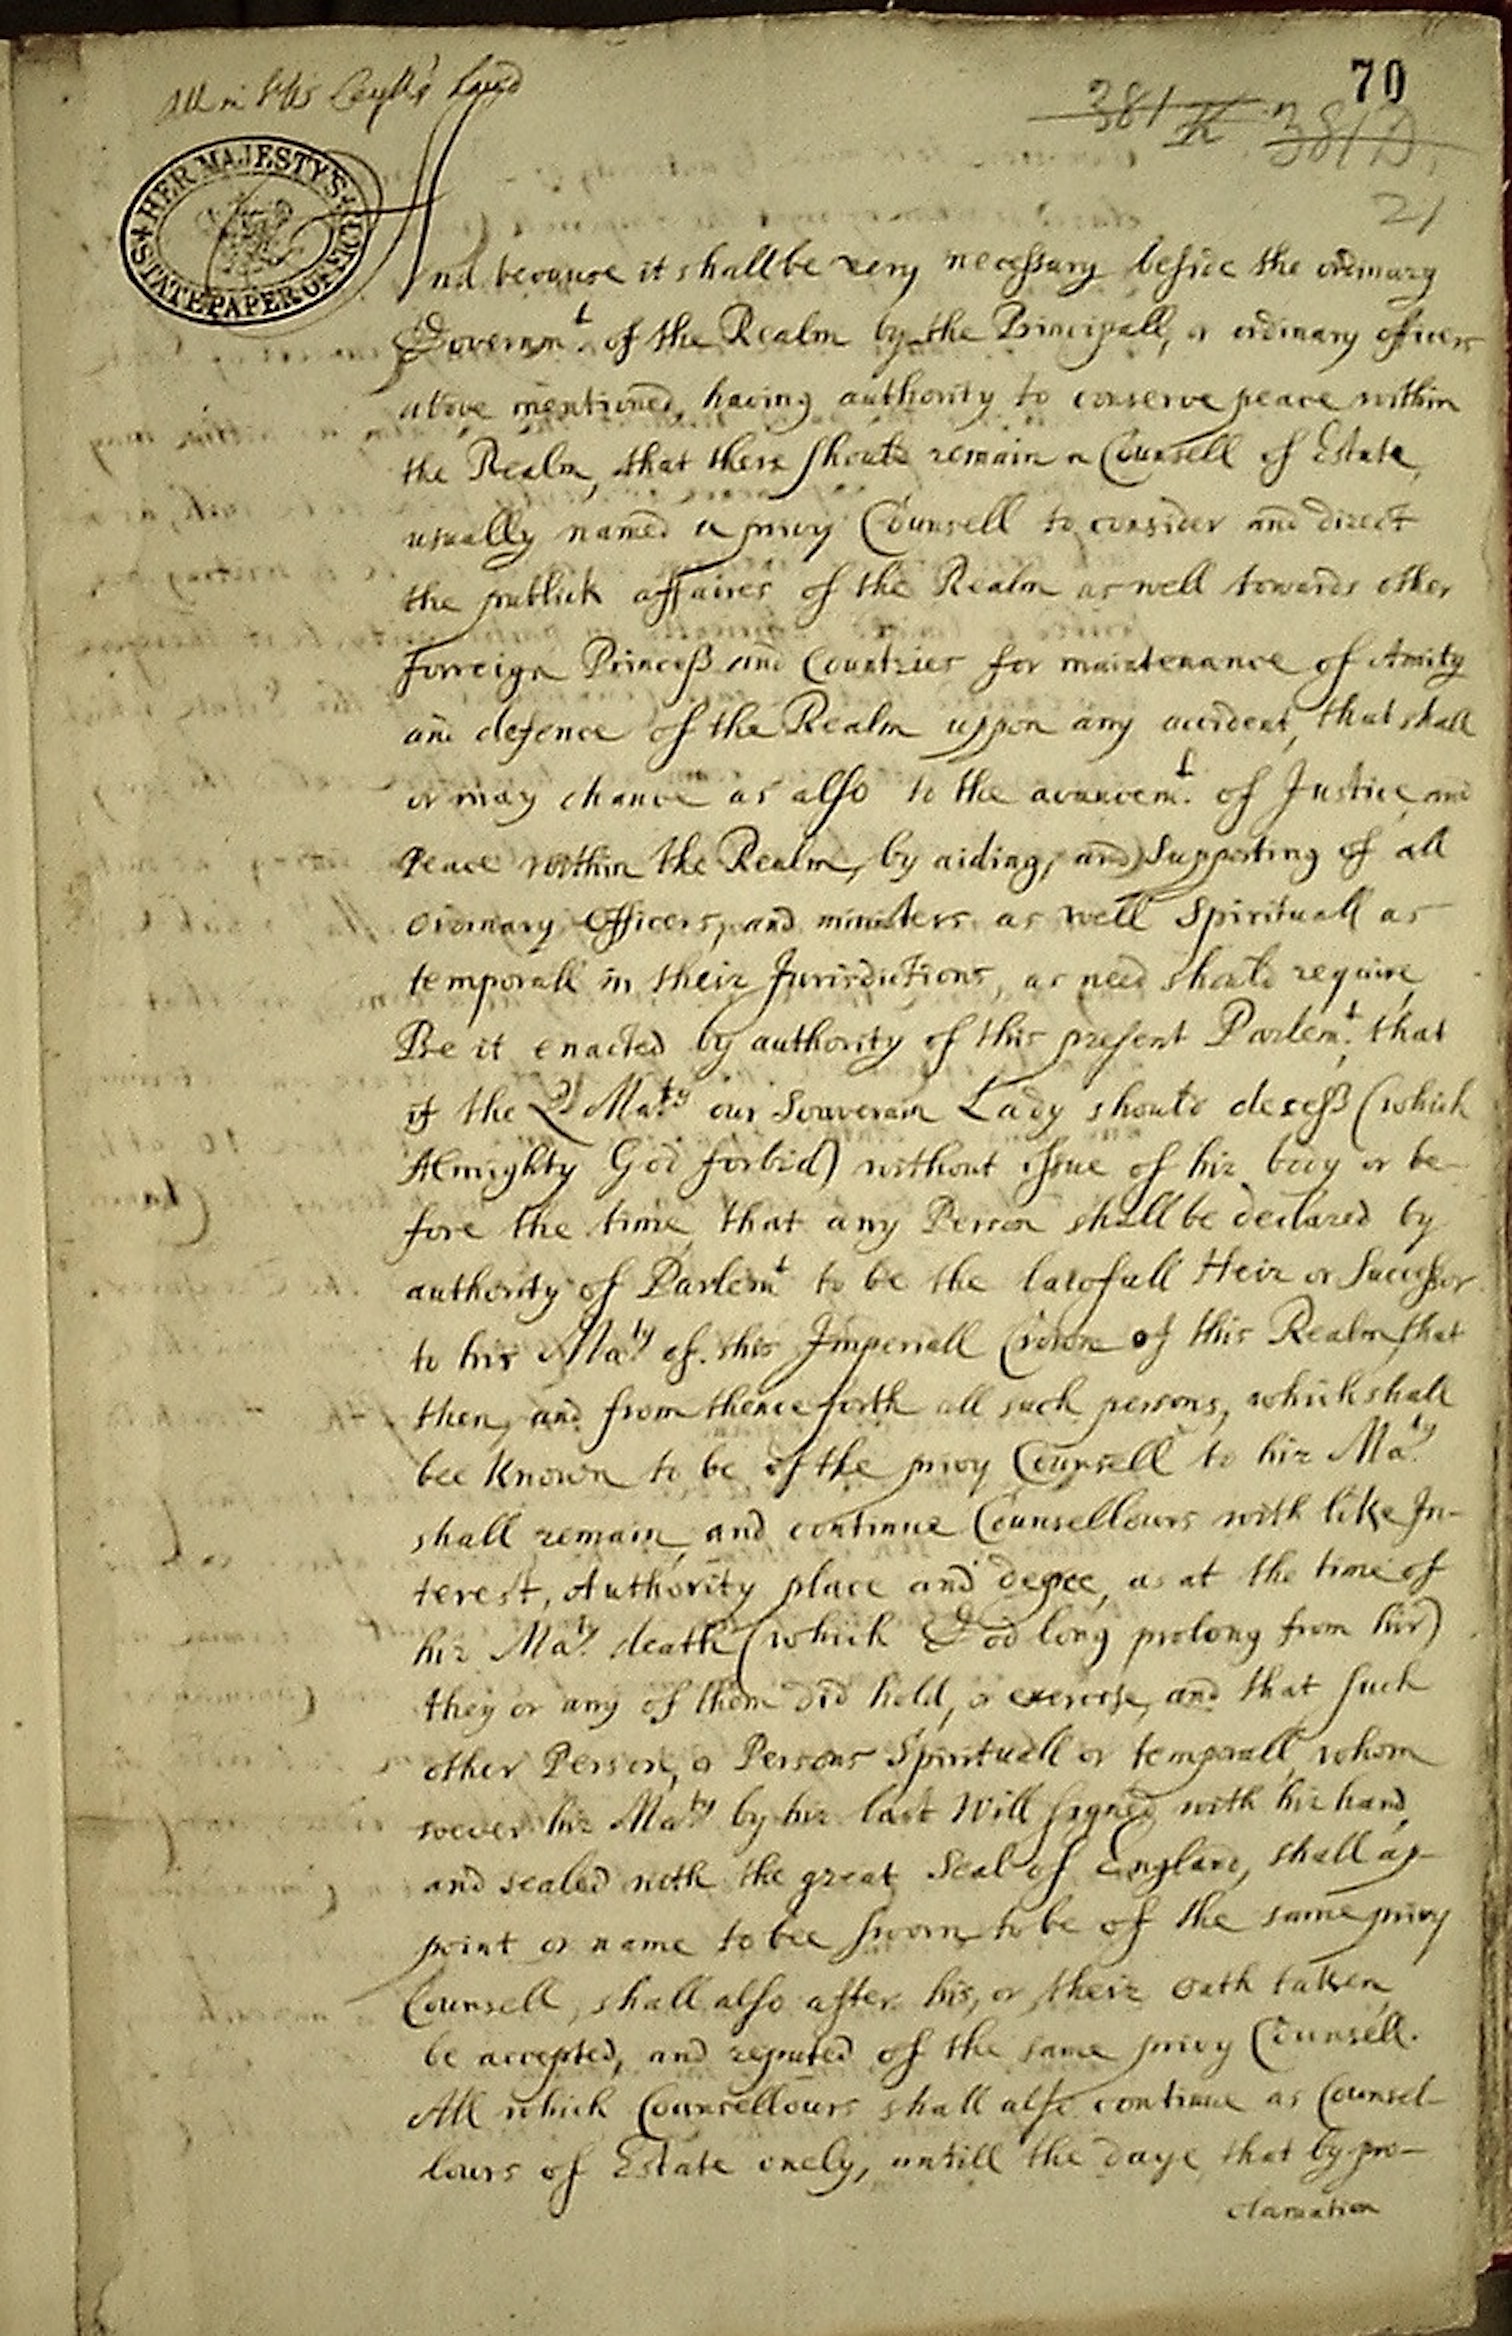 All in Sr Ws Cecyll's hand
70
381 K 381 D.
21
HER MAJESTY'S STATE PAPER OFFICE
And because it shall be very necessary beside the ordinary
Governmt. of the Realm by the Principall, or ordinary officers
above mentioned, having authority to conserve peace within
the Realm, that there should remain a Counsell of Estate,
usually named a privy Counsell to consider and direct
the publick affaires of the Realm as well towards other
forreign Princess and Countries for maintenance of Amity
and defence of the Realm uppon any accident, that shall
or may chance as also to the avancemt. of Justice, and
Peace within the Realm, by aiding, and Supporting of all
ordinary Officers, and ministers as well Spirituall as
temporall in their Jurisdictions, as need should require
Be it enacted by authority of this present Parlemt. that
if the Qs Maty our Souverain Lady should decess (which
Almighty God forbid) without issue of hir body or be-
fore the time, that any Person shall be declared by
authority of Parlemt to be the lawfull Heir or Successor
to hir Maty of this Imperiall Crown of this Realm, that
then, and from thence forth all such persons, which shall
bee known to be of the privy Counsell to hir Maty
shall remain, and continue Counsellours with like In-
terest, Authority place and degree, as at the time of
hir Maty death (which God long prolong from hir)
they or any of them did hold, or exercise, and that such
other Person, or Persons Spirituall or temporall, whom
soever hir Maty by hir last Will signed with hir hand,
and sealed with the great Seal of England, shall ap-
point or name to bee sworn to be of the same privy
Counsell, shall also after his, or their oath taken,
be accepted, and reputed of the same privy Counsell.
All which Counsellours shall also continue as Counsel-
lours of Estate onely, untill the daye that by pro-
clamation